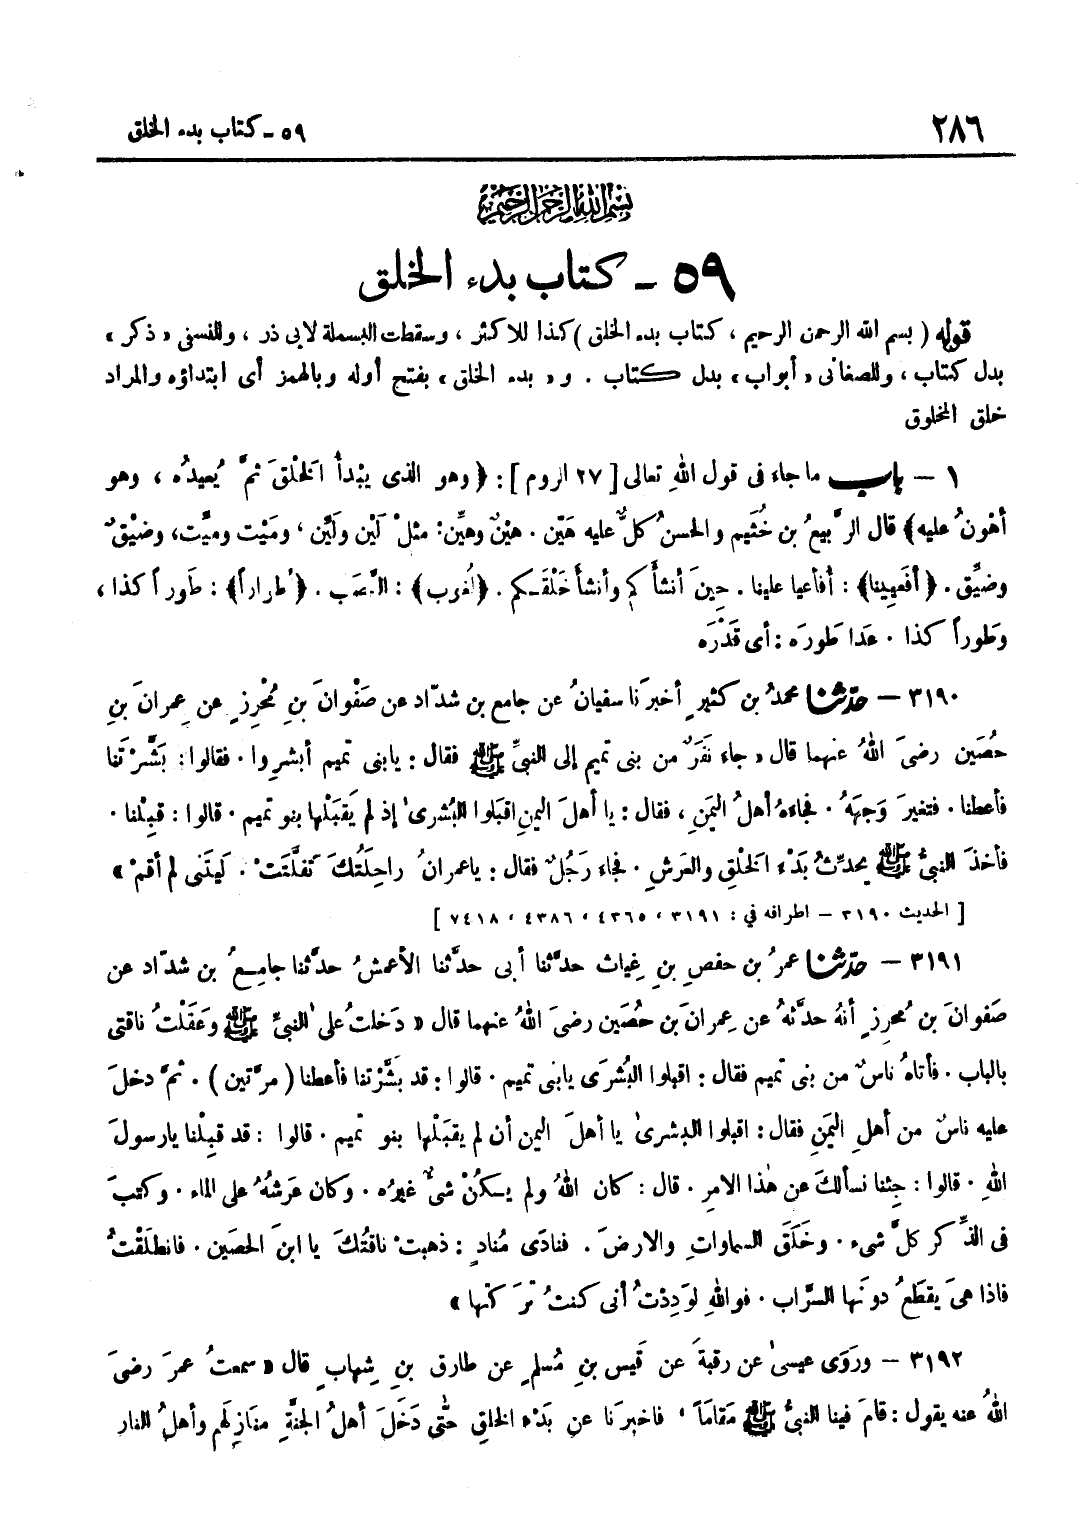 ٢٨٦
٥٩ - كتاب بدء الخلق
بسم الله الرحمن الرحيم
٥٩ - كتاب بدء الخلق
قوله ( بسم الله الرحمن الرحيم ، كتاب بدء الخلق ) كذا للاكثر ، وسقطت البسملة لابى ذر ، وللنسفى « ذكر »
بدل كتاب ، وللصغانى « أبواب » بدل كتاب . و « بدء الخلق » بفتح أوله وبالهمز أى ابتداؤه والمراد
خلق المخلوق
١ - باب ما جاء فى قول اللهِ تعالى [ ٢٧ الروم ] : ﴿ وهو الذى يبْدأُ الخلْقَ ثمَّ يُعيدُه ، وهو
أهْونُ عليه ﴾ قال الرَّبيعُ بن خُثَيم والحسنُ كلٌّ عليه هَيّن . هيْنٌ وهيِّن : مثلْ لَيْن ولَيِّن ، ومَيْت وميَّت ، وضيْقٌ
وضيِّق . ﴿ أفَعيِينا ﴾ : أفأعيا علينا . حِينَ أنشأكم وأنشأ خَلْقَكم . ﴿ لُغوب ﴾ : النَّصَب . ﴿ أطواراً ﴾ : طَوراً كذا ،
وطَوراً كذا . عَدا طَورَه : أى قَدْرَه
٣١٩٠ - حدّثنا محمدُ بن كثيرٍ أخبرَنا سفيانُ عن جامع بن شدّاد عن صَفْوانَ بنِ مُحْرِزٍ عن عِمرانَ بنِ
حُصَين رضىَ اللهُ عنهما قال « جاء نَفَرٌ من بنى تميم إلى النبىِّ ﷺ فقال : يابنى تميم أبشروا . فقالوا : بَشَّرْتَنا
فأعطنا . فتغيرَ وَجهَهُ . فجاءه أهلُ اليَمَنِ ، فقال : يا أهلَ اليمنِ اقبَلوا البُشرىٰ إذ لم يَقبَلْها بنو تميم . قالوا : قَبِلْنا .
فأخذَ النبىُّ ﷺ يحدِّثُ بَدْءَ الخلْقِ والعَرشِ . فجاء رَجُلٌ فقال : ياعمرانُ راحِلَتُكَ تَفلَّتَتْ . لَيتَنى لم أقمْ »
[ الحديث ٣١٩٠ - اطرافه في : ٣١٩١ ، ٤٣٦٥ ، ٤٣٨٦ ، ٧٤١٨ ]
٣١٩١ - حدّثنا عمرُ بن حفصِ بنِ غِياث حدَّثنا أبى حدَّثنا الأعمشُ حدَّثنا جامِعُ بن شدّاد عن
صَفوانَ بن مُحرِزٍ أنهُ حدَّثهُ عن عِمرانَ بن حُصَين رضىَ اللهُ عنهما قال « دَخلتُ على النبىِّ ﷺ وعَقَلْتُ ناقتى
بالباب . فأتاهُ ناسٌ من بنى تميم فقال : اقبلوا البُشرَى يابنى تميم . قالوا : قد بشَّرْتَنا فأعطنا ( مرَّتين ) . ثمَّ دخلَ
عليه ناسٌ من أهلِ اليمَنِ فقال : اقبلوا البشرىٰ يا أهلَ اليمن أن لم يقبَلْها بنو تميم . قالوا : قد قبِلْنا يارسولَ
اللهِ . قالوا : جِئنا نسألكَ عن هٰذا الامرِ . قال : كان اللهُ ولم يكنْ شىءٌ غيرُه . وكان عَرشهُ على الماء . وكتبَ
فى الذِّكر كلَّ شىء . وخَلَقَ السماواتِ والارضَ . فنادَى مُنادٍ : ذهبتْ ناقتُكَ يا ابنَ الحصَين . فانطلَقْتُ
فاذا هىَ يقطَعُ دونَها السرَّاب . فواللهِ لوَدِدْتُ أنى كنتُ تركتُها »
٣١٩٢ - وروَى عيسىٰ عن رقبةَ عن قَيسِ بنِ مُسلمٍ عن طارقِ بنِ شِهابٍ قال « سمعتُ عمرَ رضىَ
اللهُ عنه يقول : قامَ فينا النبىُّ ﷺ مَقاماً ، فاخبرَنا عن بَدْء الخلقِ حتَّى دَخَلَ أهلُ الجنَّةِ منازِلَهم وأهلُ النار